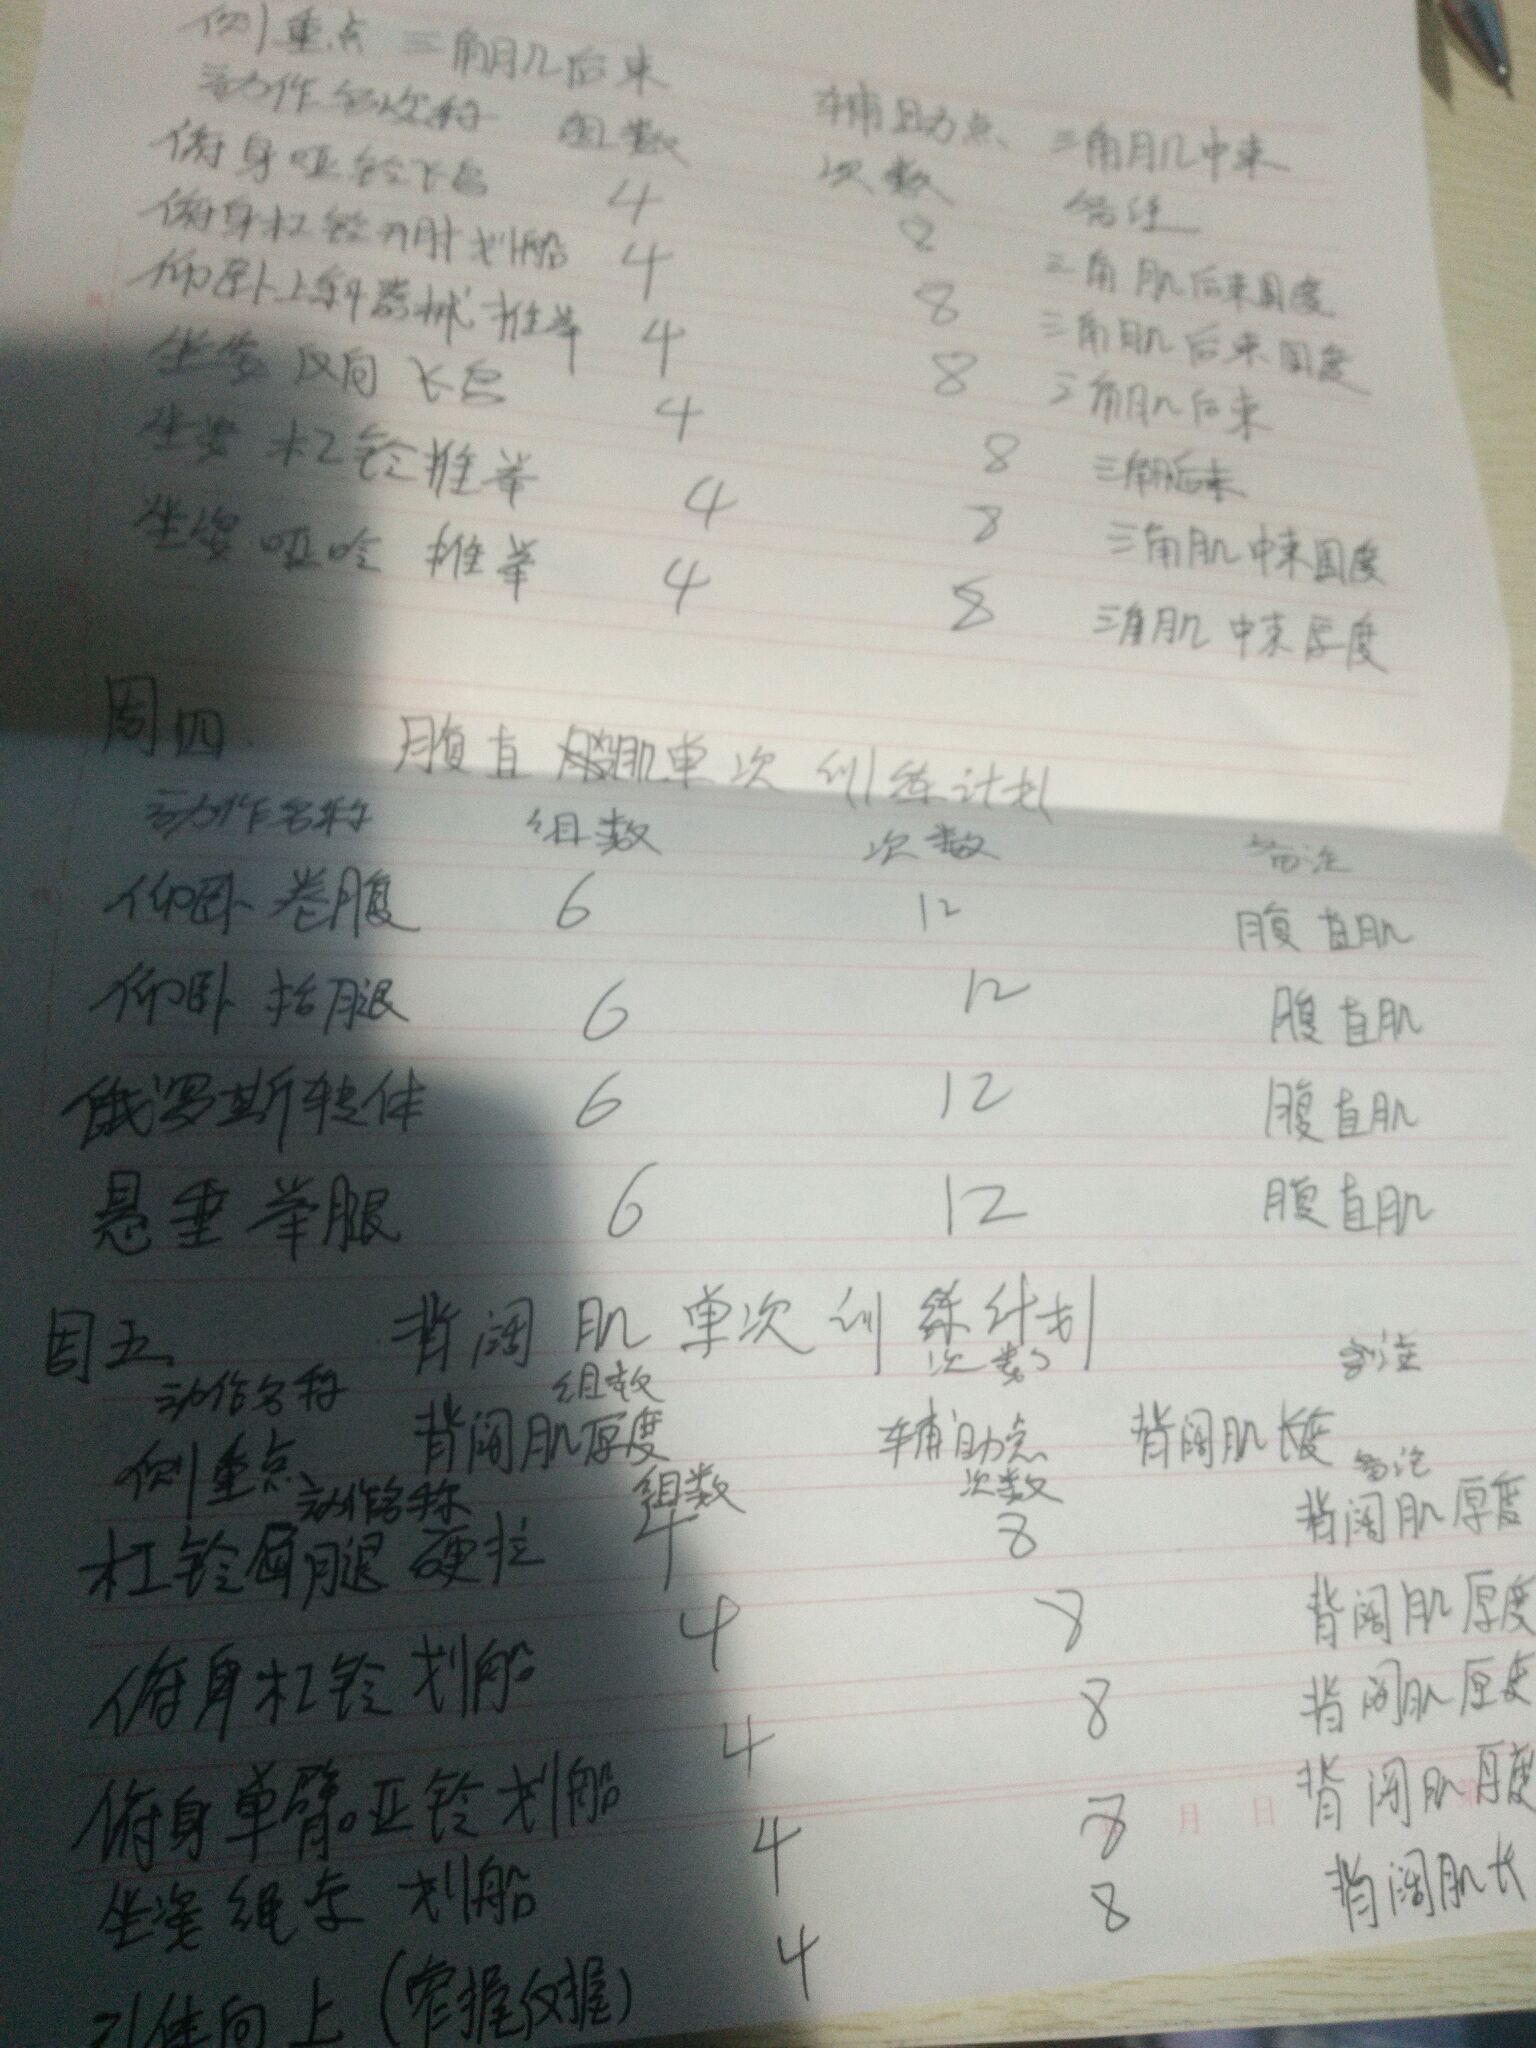 侧重点 三角肌后束 辅助点、三角肌中束
动作名次称 组数 次数 备注
俯身哑铃飞鸟 4 8 三角肌后束围度
俯身杠铃开肘划船 4 8 三角肌后束围度
仰卧上斜器械推举 4 8 三角肌后束
坐姿反向飞鸟 4 8 三角肌后束
坐姿杠铃推举 4 8 三角肌中束围度
坐姿哑呤推举 4 8 三角肌中束厚度
周四 腹直肌单次训练计划
动作名称 组数 次数 备注
仰卧卷腹 6 12 腹直肌
仰卧抬腿 6 12 腹直肌
俄罗斯转体 6 12 腹直肌
悬垂举腿 6 12 腹直肌
周五 背阔肌单次训练计划
动作名称 组数 次数 备注
侧重点 背阔肌厚度 辅助点 背阔肌长度
动作名称 组数 次数 备注
杠铃屈腿硬拉 4 8 背阔肌厚度
俯身杠铃划船 4 8 背阔肌厚度
俯身单臂哑铃划船 4 8 背阔肌厚度
坐姿绳索划船 4 8 背阔肌厚度
引体向上(窄握仰握) 4 8 背阔肌长
月 日